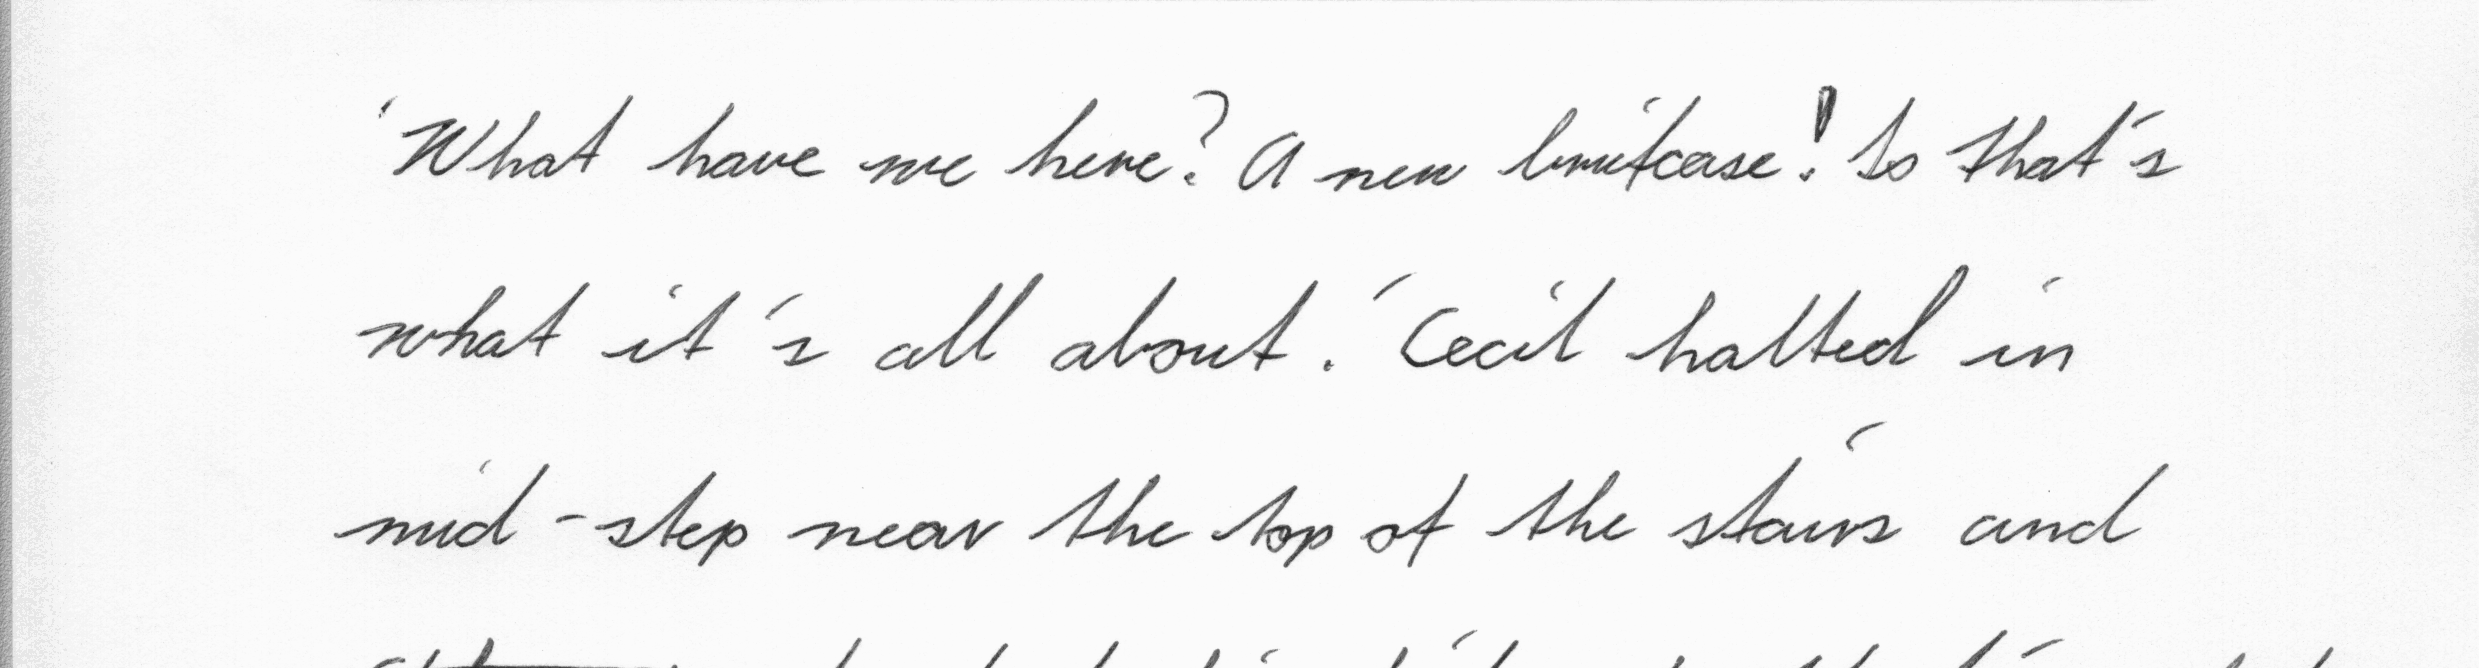 'What have we here? A new briefcase! So that's
what it's all about.' Cecil halted in
mid-step near the top of the stairs and